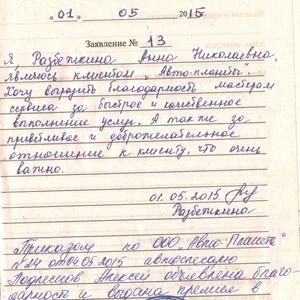 « 01 » 05 2015
Заявление № 13
Я, Разбежкина Анна Николаевна,
являюсь клиентом „Авто-планеты".
Хочу выразить благодарность мастерам
сервиса за быстрое и качественное
выполнение услуг. А также за
приветливое и доброжелательное
отношение к клиенту, что очень
важно.
01.05.2015
Разбежкина
Приказом по ООО „Авто-Планета"
№24 от 04.05.2015 автослесарю
Алексей объявлена благо
дарность и выдана премия в